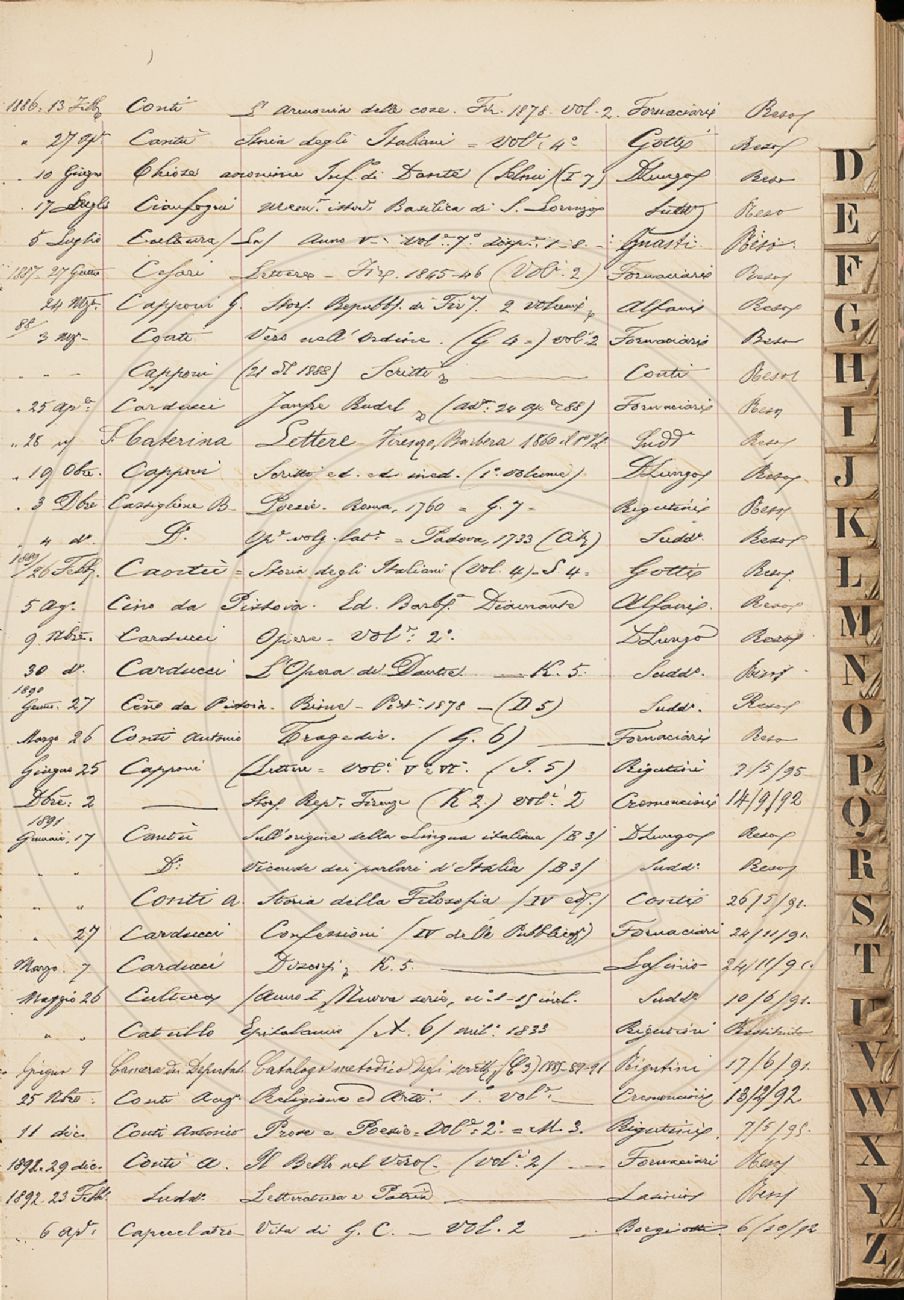 1886. 13 Febb. Conti L'armonia delle cose. Fir. 1878. vol. 2. Fornaciari Reso
" 27 Apr. Cantù Storia degli Italiani = vol. 4° Gotti Reso
" 10 Giugno Chiose anonime Inf. di Dante (Selmi) (I 7) DLungo Reso
" 17 Luglio Cianfogni Mem. istor. Basilica di S. Lorenzo Sudd. Reso
" 5 Luglio Coltura (La) Anno V - vol. 7° disp. 1-8 - Guasti Reso
1887. 27 Genn. Cesari Lettere - Fir. 1845-46 (Vol. 2) Fornaciari Reso
24 Mzo. Capponi G. Stor. Repubb. di Fir. 2 volumi Alfani Reso
88/ 3 Mzo - Conti Vero nell'Ordine. (G 4 =) vol. 2 Fornaciari Reso
" - - Capponi (21 1888) Scritti Conti Reso
" 25 Apr. Carducci Rudel (24 Apr. 88) Fornaciari Reso
" 28 S. Caterina Lettere Firenze, Barbèra 1860 Sudd. Reso
" 19 8bre. Capponi Scritti ed. ed ined. (1° volume) DLungo Reso
" 3 Dbre Castiglione B. Poesie. Roma, 1760 = G. 7 - Rigutini Reso
" 4 d°. D°. Op. volg. lat. = Padova, 1733 Sudd. Reso
1889/26 Febb. Cantù = Storia degli Italiani (Vol. 4) = S 4 = Gotti Reso
5 Ag. Cino da Pistoia. Ed. Barb. Diamante Alfani. Reso
9 Nbre. Carducci Opere - Vol. 2°. DLungo Reso
30 d°. Carducci L'Opera di Dante — K. 5. Sudd. Reso
1890
Genn. 27 Cino da Pistoia. Rime - Pist. 1878 — (D 5) Sudd. Reso
Marzo 26 Conti Antonio Tragedie. (G. 6) — Fornaciari Reso
Giugno 25 Capponi (Lettere = Vol. V e VI. (I. 5) Rigutini 7/5/95
Dbre. 2 — Stor. Rep. Firenze (K 2.) vol. 2 Cremoncini 14/9/92
1891
Gennaio, 17 Cantù Sull'origine della Lingua italiana /B 3/ DLungo Reso
" " D°. Vicende dei parlari d'Italia /B 3/ Sudd. Reso
" " Conti A. Storia della Filosofia /IV ed./ Conti 26/5/91.
" 27 Carducci Confessioni /IV delle Pubblicaz./ Fornaciari 24/11/91.
Marzo. 7 Carducci Discorsi K. 5. — Lasinio 24/11/91.
Maggio 26 Cultura /Anno I, Nuova serie, n. 1-15 incl. Sudd. 10/6/91.
" " Catullo Epitalamio /A. 6/ Mil. 1833 Rigutini Restituito
Giugno 9 Camera dei Deputati Catalogo metodico degli scritti (C 3) Rigutini 17/6/91.
25 Nbre. Conti Aug. Religione ed Arte. 1° vol. — Cremoncini 13/9/92
11 dic. Conti Antonio Prose e Poesie = Vol. 2°. = M. 3. Rigutini. 7/5/95.
1892. 29 dic. Conti A. Il Bello nel Vero. (Vol. 2/ - Fornaciari Reso
1892. 23 Febb. Sudd. Letteratura e Patria — Lasinio Reso
6 Ap. Capecelatro Vita di G. C. — Vol. 2 6/10/92
D
E
F
G
H
I
J
K
L
M
N
O
P
Q
R
S
T
U
V
W
X
Y
Z